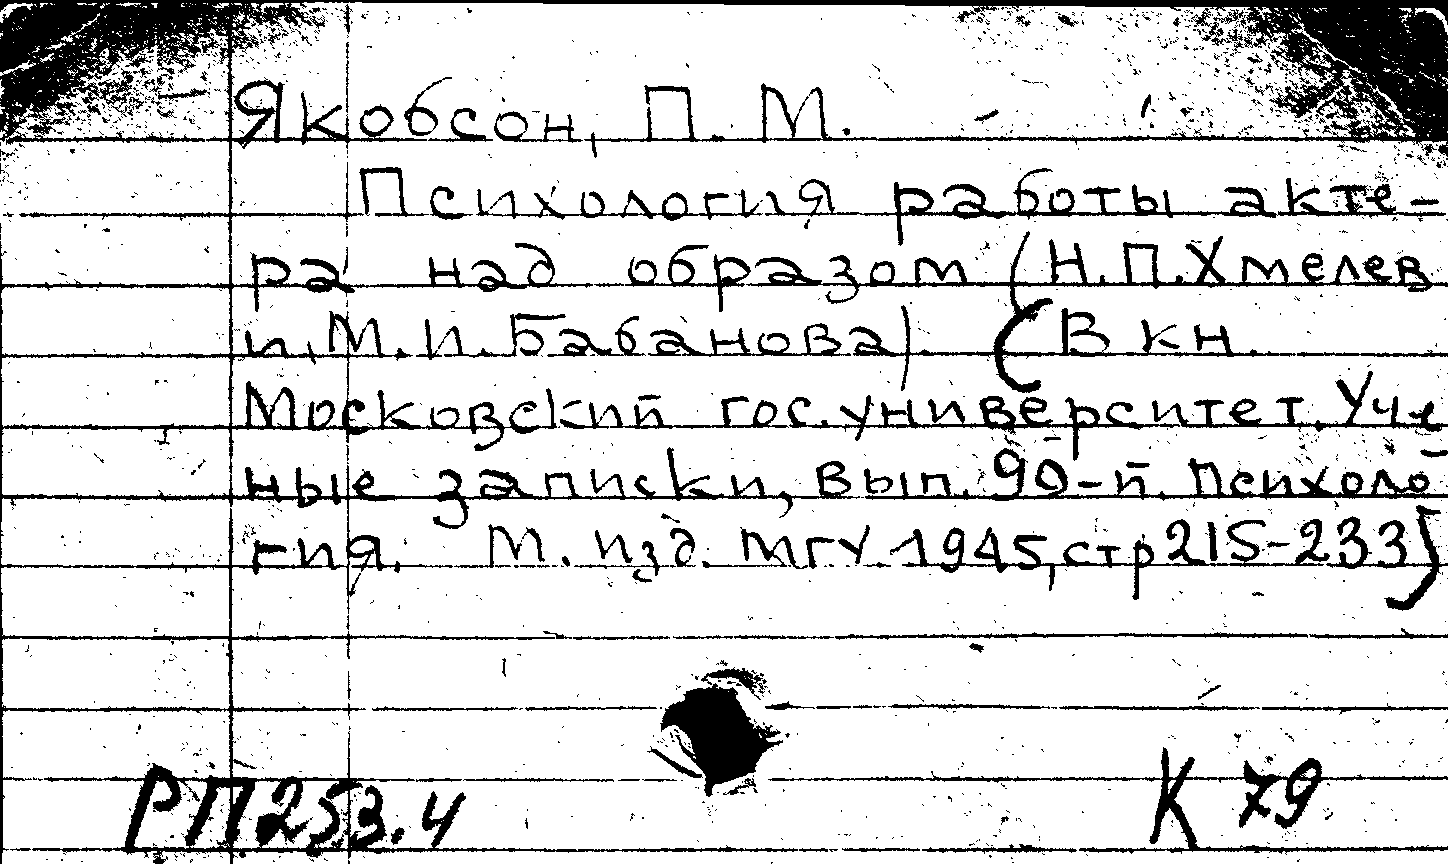 Якобсон, П. М.
Психология работы акте-
ра над образом (Н.П.Хмелев
и М.И.Бабанова). (В кн.
Московский гос.университет. Уче
ные записки, вып. 90-й. Психоло
гия. М. изд. МГУ. 1945, стр 215-233]
РП253.4
К 79